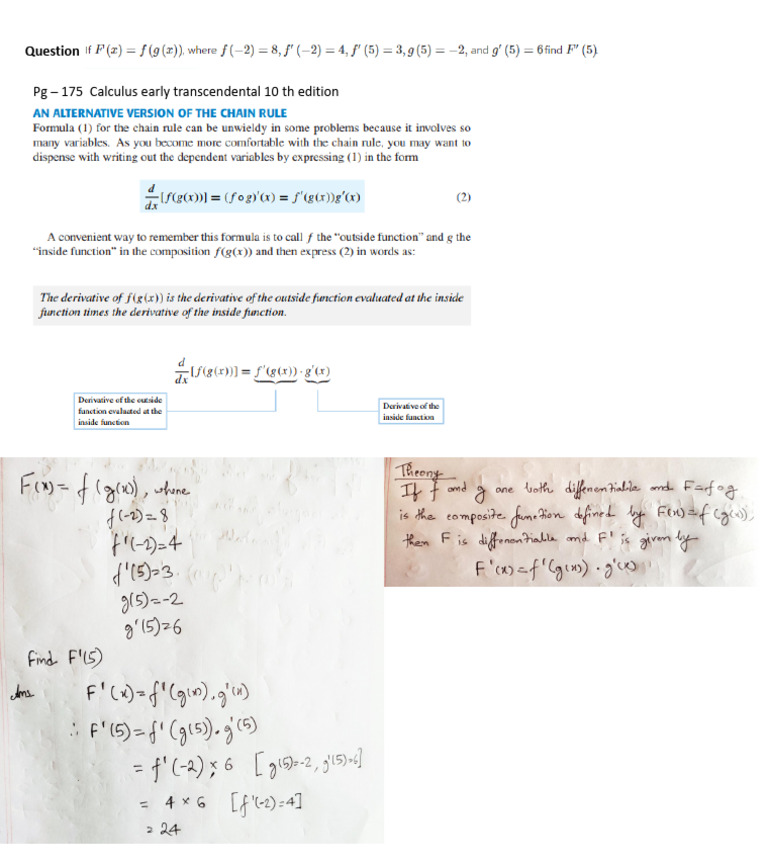 Question If F (x) = f (g (x)), where f (−2) = 8, f′ (−2) = 4, f′ (5) = 3, g (5) = −2, and g′ (5) = 6 find F″ (5).
Pg – 175 Calculus early transcendental 10 th edition
AN ALTERNATIVE VERSION OF THE CHAIN RULE
Formula (1) for the chain rule can be unwieldy in some problems because it involves so
many variables. As you become more comfortable with the chain rule, you may want to
dispense with writing out the dependent variables by expressing (1) in the form
d/dx [f(g(x))] = (f∘g)′(x) = f′(g(x))g′(x) (2)
A convenient way to remember this formula is to call f the “outside function” and g the
“inside function” in the composition f(g(x)) and then express (2) in words as:
The derivative of f(g(x)) is the derivative of the outside function evaluated at the inside
function times the derivative of the inside function.
d/dx [f(g(x))] = f′(g(x)) · g′(x)
Derivative of the outside
function evaluated at the
inside function
Derivative of the
inside function
F(x) = f (g(x)), where
f(-2)=8
f'(-2)=4
f'(5)=3
g(5)=-2
g'(5)=6
find F'(5)
Ans. F'(x)=f'(g(x)).g'(x)
∴ F'(5)=f'(g(5)).g'(5)
= f'(-2) × 6 [g(5)=-2, g'(5)=6]
= 4 × 6 [f'(-2)=4]
= 24
Theory
If f and g are both differentiable and F=f∘g
is the composite function defined by F(x)=f(g(x)),
then F is differentiable and F' is given by
F'(x)=f'(g(x)).g'(x)